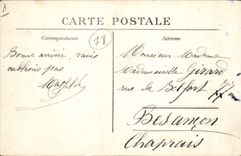 CARTE POSTALE
Correspondance
Adresse
78
Bonne arrivée
Mathilde
Monsieur Madame
Mademoiselle Girard
rue de Belfort 77
Besançon
Chaprais